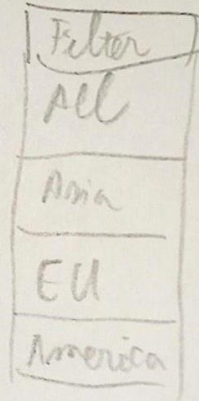 Filter
All
Asia
EU
America